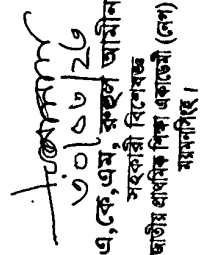 ৩০/০৩/২৬
এ,কে,এম, রুহুল আমীন
সহকারী বিশেষজ্ঞ
জাতীয় প্রাথমিক শিক্ষা একাডেমী (নেপ)
ময়মনসিংহ।